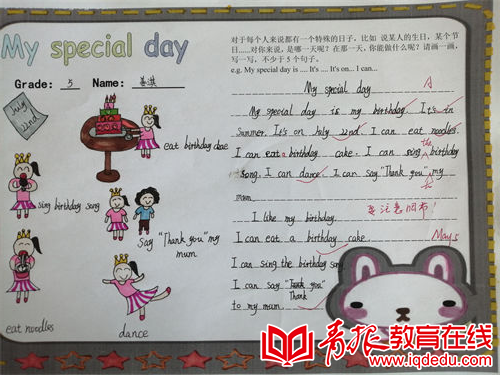 My special day
Grade: 5 Name:
July
22nd
eat birthday cake
sing birthday song
Say "Thank you" my
mum
eat noodles
dance
对于每个人来说都有一个特殊的日子，比如 说某人的生日，某个节
日......对你来说，是哪一天呢？在那一天，你能做什么呢？请画一画，
写一写，不少于 5 个句子。
e.g. My special day is .... It's .... It's on... I can...
My special day
A
My special day is my birthday. It's in
summer. It's on July 22nd. I can eat noodles.
I can eat a birthday cake. I can sing the birthday
song. I can dance. I can say "Thank you" to my
mum.
I like my birthday.
要注意
I can eat a birthday cake.
May 5
I can sing the birthday song.
I can say "Thank you"
Thank
to my mum
青报教育在线
www.iqdedu.com